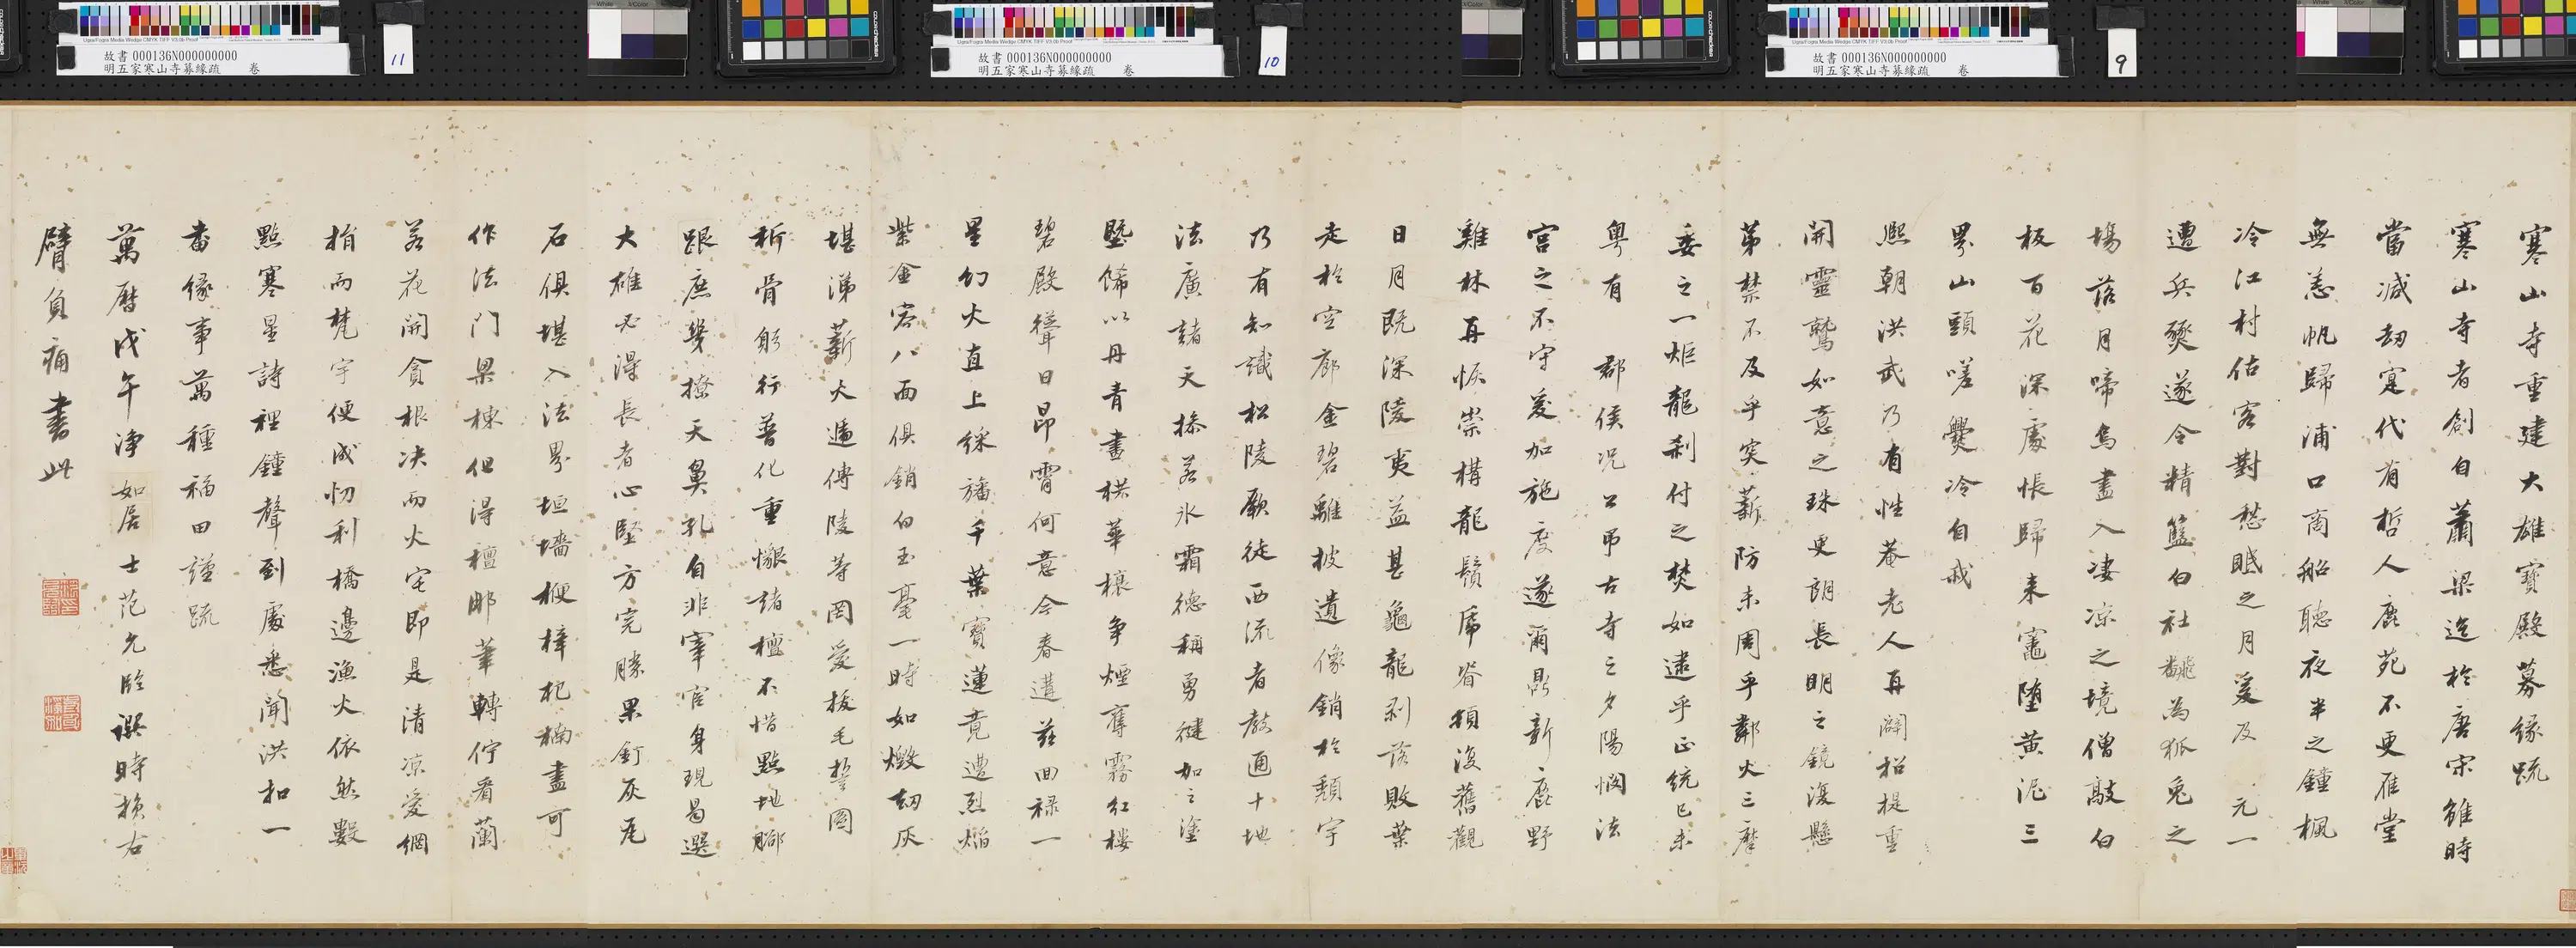 故書 000136N000000000
明五家寒山寺募緣疏 卷
11
故書 000136N000000000
明五家寒山寺募緣疏 卷
10
故書 000136N000000000
明五家寒山寺募緣疏 卷
9
寒山寺重建大雄寶殿募緣疏
寒山寺者創自蕭梁迄於唐宋雖時
當減劫寔代有哲人鹿苑不更雁堂
無恙帆歸浦口商船聽夜半之鐘楓
冷江村估客對愁眠之月爰及 元一
遭兵燹遂令精籃白社翻為狐兔之
場落月啼烏盡入淒涼之境僧敲白
板百花深處悵歸來竈墮黃泥三
界山頭嗟爨冷自我
熙朝洪武乃有性菴老人再闢招提重
開靈鷲如意之珠更朗長明之鏡復懸
第禁不及乎突薪防未周乎鄰火三摩
委之一炬龍剎付之焚如逮乎正統己未
粵有 郡侯况公弔古寺之夕陽憫法
宮之不守爰加施度遂爾鼎新鹿野
雞林再恢崇構龍鬚虎脊頓復舊觀
日月既深陵夷益甚龜龍剥落敗葉
走於空廊金碧離披遺像銷於頹宇
乃有知識松陵厥徒西流者教通十地
法廣諸天操若氷霜德稱勇健加之塗
墍飾以丹青畫栱華榱爭煙奪霧紅樓
碧殿聳日昂霄何意今春遘茲回祿一
星幻火直上綵旛千葉寶蓮竟遭烈焰
紫金容八面俱銷白玉毫一時如燬劫灰
堪涕薪火遞傳陵等罔愛拔毛誓圖
析骨躬行普化重懺諸檀不惜點地腳
跟庶幾撩天鼻孔自非宰官身現曷選
大雄必得長者心堅方完勝果釘灰瓦
石俱堪入法界垣墻梗梓杞楠盡可
作法門梁棟但得檀那筆轉佇看蘭
若花開貪根決而火宅即是清涼愛網
捐而梵宇便成忉利橋邊漁火依然數
點寒星詩裡鐘聲到處悉聞洪扣一
番緣事萬種福田謹疏
萬曆戊午淨如居士范允臨譔時損右
臂負痛書此